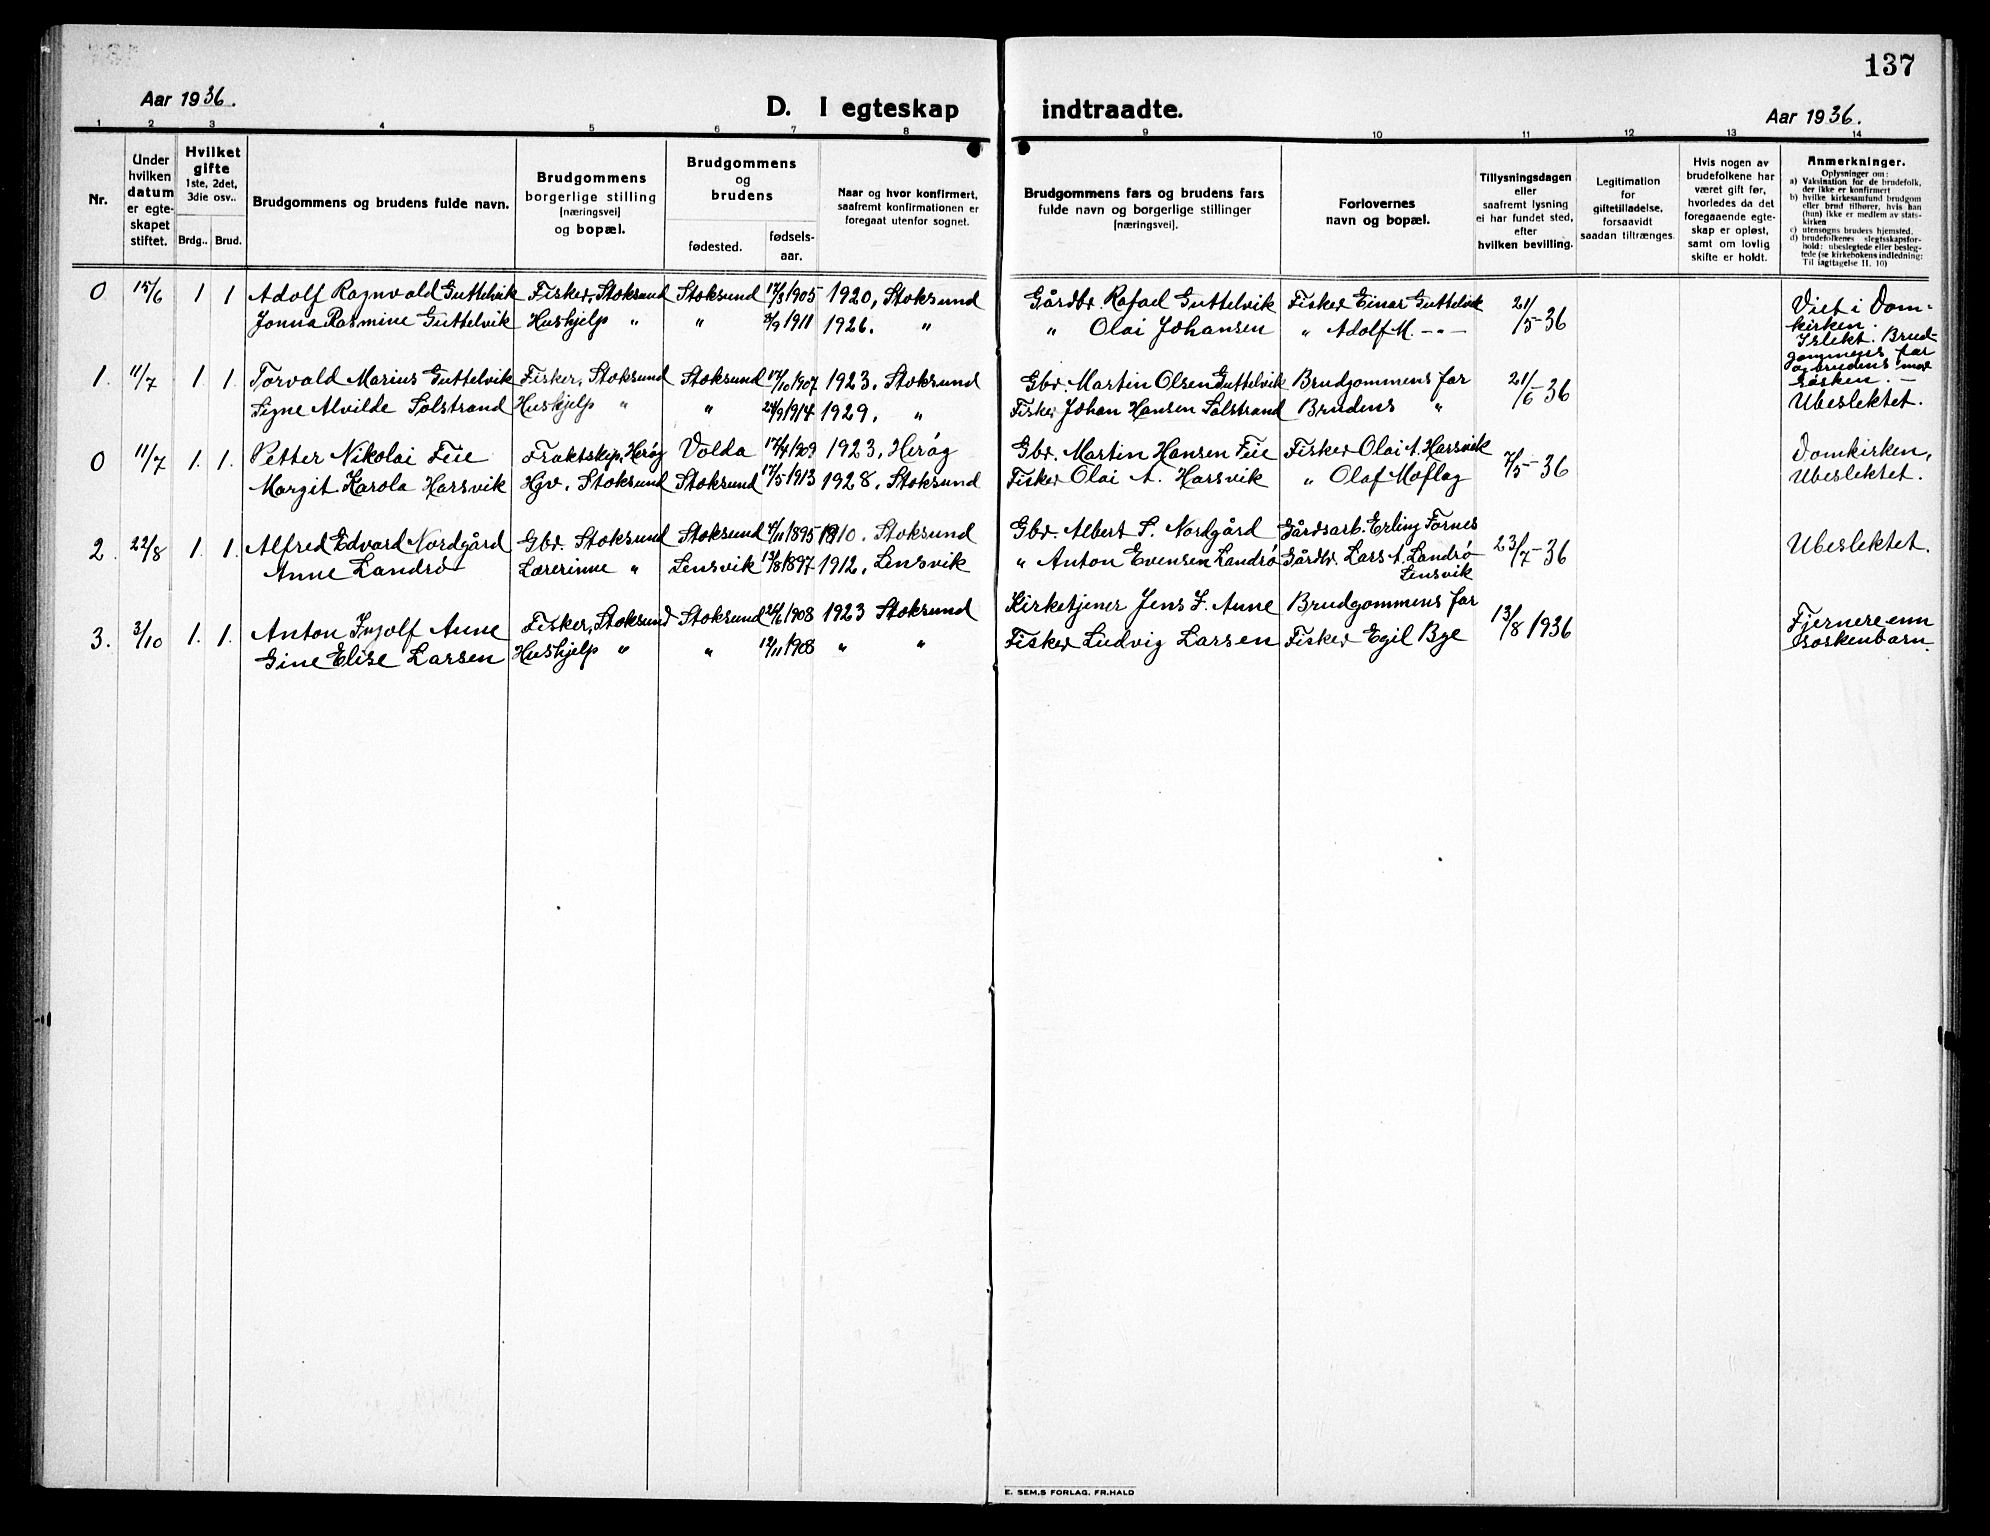 137
Aar 1936.
D. I egteskap indtraadte.
Aar 1936.
1 2 3 4 5 6 7 8 9 10 11 12 13 14
Nr.
Under hvilken datum er egteskapet stiftet.
Hvilket gifte 1ste, 2det, 3die osv..
Brdg.. Brud.
Brudgommens og brudens fulde navn.
Brudgommens borgerlige stilling [næringsvei] og bopæl.
Brudgommens og brudens
fødested. fødsels-aar.
Naar og hvor konfirmert, saafremt konfirmationen er foregaat utenfor sognet.
Brudgommens fars og brudens fars fulde navn og borgerlige stillinger [næringsvei].
Forlovernes navn og bopæl.
Tillysningsdagen eller saafremt lysning ei har fundet sted, efter hvilken bevilling.
Legitimation for giftetilladelse, forsaavidt saadan tiltrænges.
Hvis nogen av brudefolkene har været gift før, hvorledes da det foregaaende egteskap er opløst, samt om lovlig skifte er holdt.
Anmerkninger.
Oplysninger om:
a) Vaksination for de brudefolk, der ikke er konfirmert
b) hvilke kirkesamfund brudgom eller brud tilhører, hvis han (hun) ikke er medlem av statskirken
c) utensogns bruders hjemsted.
d) brudefolkenes slegtsskapsforhold: ubeslegtede eller beslegtede (se kirkebokens indledning: Til iagttagelse II. 10)
0 15/6 1 1 Adolf Ragnvald Guttelvik Fisker, Stoksund Stoksund 17/3 1905 1920, Stoksund Gårdbr. Rafael Guttelvik Fisker Einar Guttelvik 21/5-36 Viet i Dom-
Jonna Rasmine Guttelvik Hushjelp " " 8/9 1911 1926. " " Olai Johansen " Adolf M. -"- kirken.
I slekt. Brud-
gommens far
og brudens mor
søsken. —
1. 11/7 1. 1. Torvald Marius Guttelvik Fisker, Stoksund Stoksund 17/10 1907 1923. Stoksund Gbr. Martin Olsen Guttelvik Brudgommens far 21/6-36
Signe Alvilde Solstrand Hushjelp " " 24/9 1914 1929. " Fisker Johan Hansen Solstrand Brudens " Ubeslektet.
0 11/7 1. 1. Petter Nikolai Feie Fraktskip, Herøy Volda 17/4 1909 1923, Herøy Gbr. Martin Hansen Feie Fisker Olai A. Harsvik 7/5-36 Domkirken,
Margit Karola Harsvik Hgv. Stoksund Stoksund 17/5 1913 1928. Stoksund Fisker Olai A. Harsvik " Olaf Moflag Ubeslektet.
2. 22/8 1. 1. Alfred Edvard Nordgård Gbr. Stoksund Stoksund 1895 1910. Stoksund Gbr. Albert S. Nordgård Gårdsarb. Erling Fornes 23/7-36 Ubeslektet.
Anne Landrø Lærerinne " Lensvik 13/8 1897 1912, Lensvik " Anton Evensen Landrø Gårdbr. Lars A. Landrø
Lensvik
3. 3/10 1. 1. Anton Ingolf Aune Fisker, Stoksund Stoksund 26/6 1908 1923 Stoksund Kirketjener Jens F. Aune Brudgommens far 13/8 1936 Fjernere enn
Gine Elise Larsen Hushjelp " " 12/11 1908 " " Fisker Ludvig Larsen Fisker Egil Bye søskenbarn.
E. SEM.S FORLAG. FR.HALD